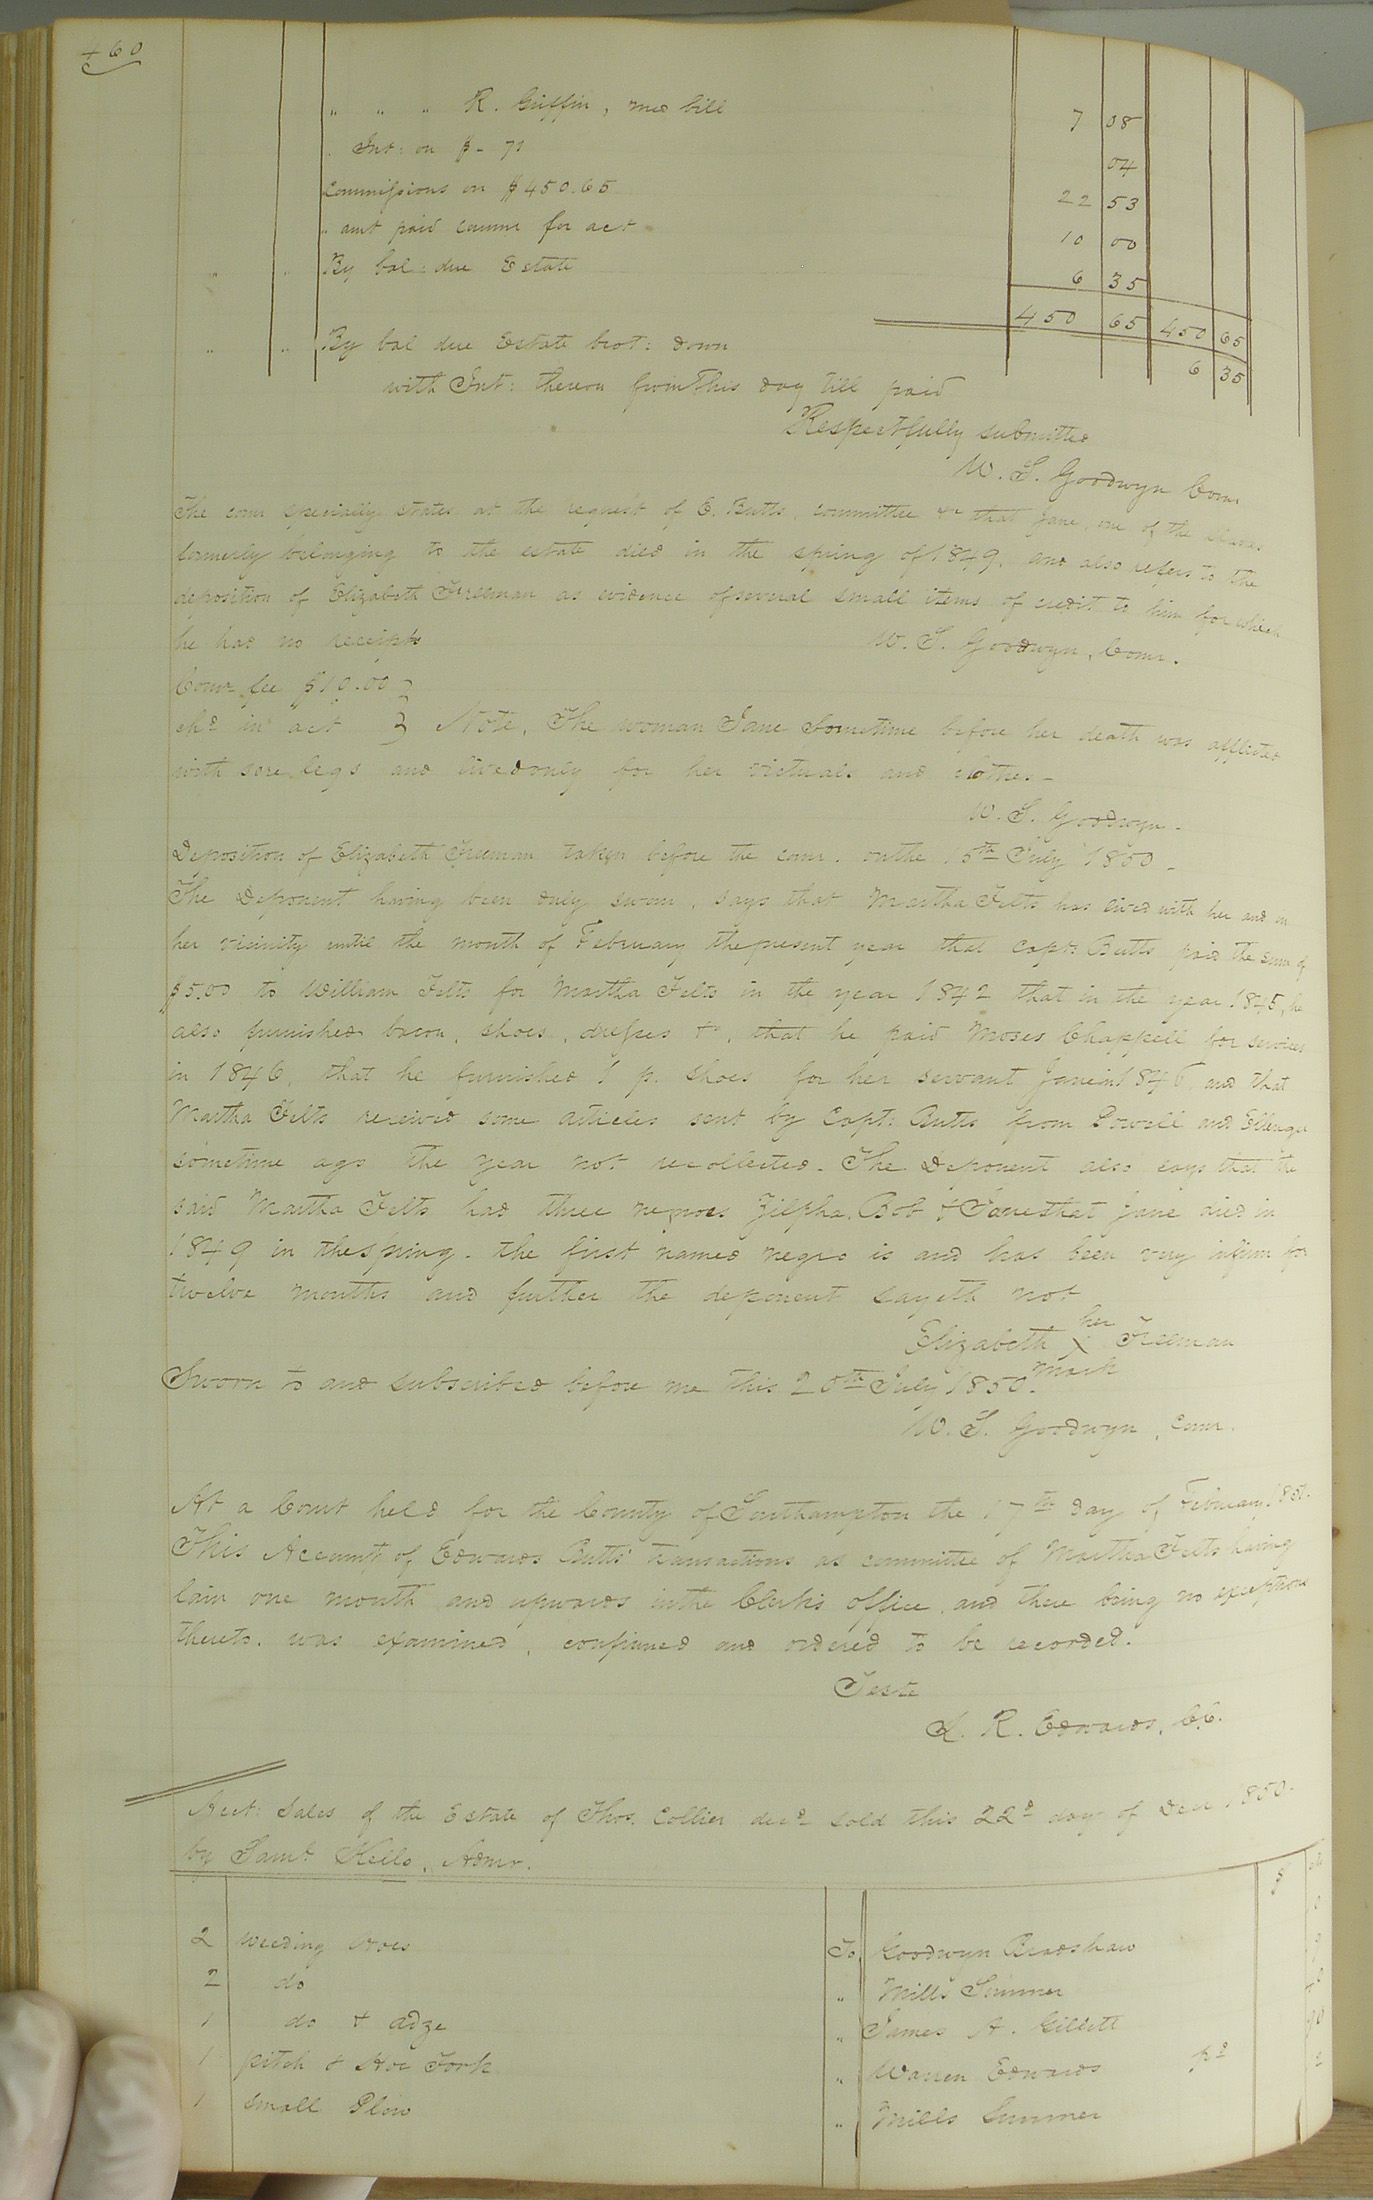 460
" " " R. Griffin, med bill 7 08
Int: on $ - 71 04
Commissions on $450.65 22 53
" amt paid comnr for act 10 00
" " By bal: due Estate 6 35
450 65 450 65
" " By bal due Estate brot: down 6 35
with Int: thereon from This day till paid
Respectfully submitted
W. S. Goodwyn Comr
The comr specially states at the request of E. Butts, committee &c that Jane, one of the slaves
formerly belonging to the estate died in the spring of 1849, and also refers to the
deposition of Elizabeth Freeman as evidence of several small items of credit to him for which
he had no receipts
W. S. Goodwyn, Comr.
Comr fee $10.00
chd in act } Note, The woman Jane Sometime before her death was afflicted
with sore legs and lived only for her victuals and clothes -
W. S. Goodwyn -
Deposition of Elizabeth Freeman taken before the comr. on the 15th July 1850 -
The Deponent having been duly sworn, says that Martha Felts has lived with her and in
her vicinity until the month of February the present year that Capt: Butts paid the sum of
$5.00 to William Felts for Martha Felts in the year 1842 that in the year 1845, he
also furnished bacon, shoes, dresses &c, that he paid Moses Chappell for services
in 1846, that he furnished 1 p. shoes for her servant Jane in 1846, and that
Martha Felts received some articles sent by Capt: Butts from Powell and
sometime ago the year not recollected. The Deponent also says that the
said Martha Felts had three negroes Zilpha, Bob & Jane that Jane died in
1849 in the spring. the first named negro is and has been very infirm for
twelve months and further the deponent sayeth not
her
Elizabeth X Freeman
mark
Sworn to and subscribed before me this 20th July 1850.
W. S. Goodwyn, comr.
At a Court held for the County of Southampton the 17th day of February 1851.
This Account of Edwards Butts' transactions as committee of Martha Felts having
lain one month and upwards in the Clerk's office, and there being no exceptions
thereto. was examined, confirmed and ordered to be recorded.
Teste
L. R. Edwards, C.C.
Acct: Sales of the Estate of Thos. Collier decd sold this 22d day of Decr 1850.
by Saml. Kello, Admr.
$
2 weeding Hoes To Goodwyn Bradshaw
2 do " Mills Sumner
1 do & adze " James A. Gillett
1 pitch & Hoe Fork " Warren Edwards pd
1 Small Plow " Mills Sumner